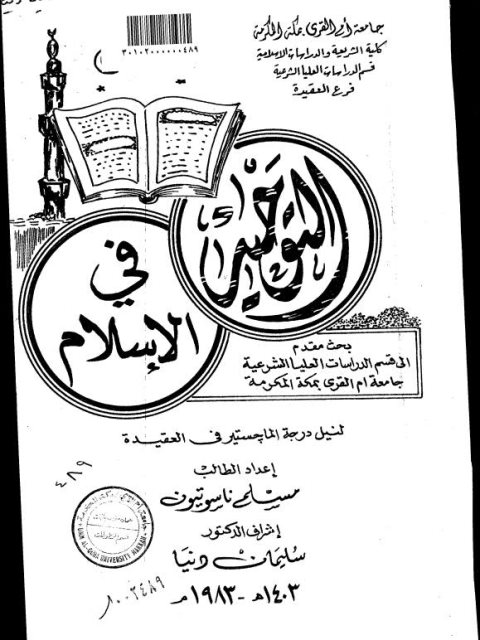 ٣٠١٠٢٠٠٠٠٠٠٤٨٩
جامعة أم القرى بمكة المكرمة
كلية الشريعة والدراسات الاسلامية
قسم الدراسات العليا الشرعية
فرع العقيدة
التوحيد
في
الإسلام
بحث مقدم
الى قسم الدراسات العليا الشرعية
جامعة ام القرى بمكة المكرمة
لنيل درجة الماجستير في العقيدة
إعداد الطالب
مسلم ناسوتيون
إشراف الدكتور
سليمان دنيا
١٤٠٣ه - ١٩٨٣م
٤٨٩
UMM AL-QURA UNIVERSITY MAKKAH